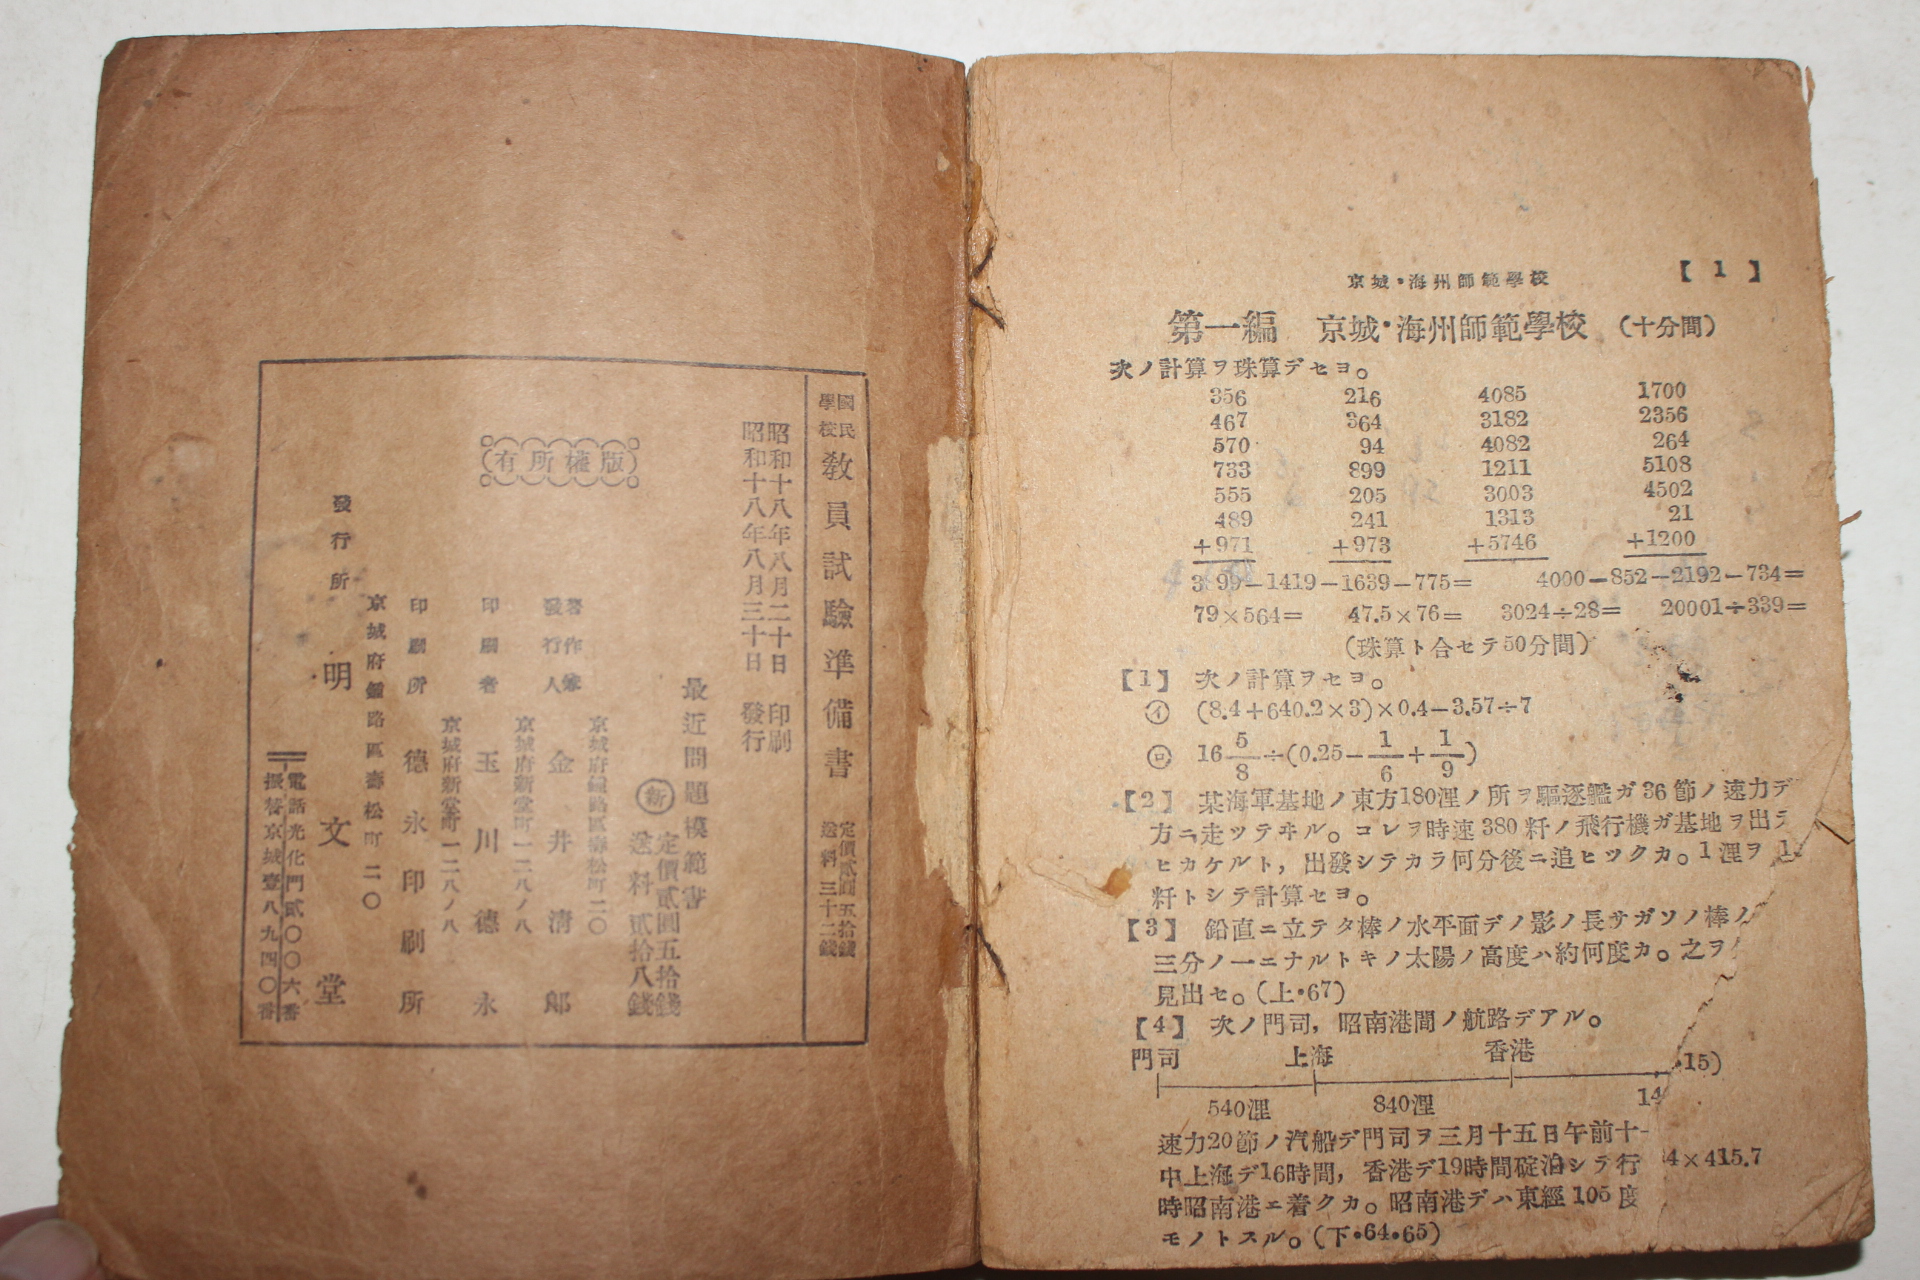 國民
學校
教員試驗準備書
定價貳圓五拾錢
送料三十二錢
昭和十八年八月二十日 印刷
昭和十八年八月三十日 發行
最近問題模範書
新
定價貳圓五拾錢
送料貳拾八錢
版權所有
京城府鐘路區壽松町二〇
著作兼
發行人
金井清郞
京城府新堂町一二八ノ八
印刷者 玉川德永
京城府新堂町一二八ノ八
印刷所 德永印刷所
京城府鐘路區壽松町二〇
發行所 明文堂
電話光化門貳〇〇六番
振替京城壹八九四〇番
京城・海州師範學校 【1】
第一編 京城・海州師範學校 (十分間)
次ノ計算ヲ珠算デセヨ。
356 216 4085 1700
467 364 3182 2356
570 94 4082 264
733 899 1211 5108
555 205 3003 4502
489 241 1313 21
+971 +973 +5746 +1200
3 99−1419−1639−775= 4000−852−2192−734=
79×564= 47.5×76= 3024÷28= 20001÷339=
(珠算ト合セテ50分間)
【1】 次ノ計算ヲセヨ。
㋑ (8.4+640.2×3)×0.4−3.57÷7
㋺ 16 5/8÷(0.25−1/6+1/9)
【2】 某海軍基地ノ東方180浬ノ所ヲ驅逐艦ガ36節ノ速力デ
方ニ走ツテヰル。コレヲ時速380粁ノ飛行機ガ基地ヲ出テ
ヒカケルト，出發シテカラ何分後ニ追ヒツクカ。1浬ヲ 1
粁トシテ計算セヨ。
【3】 鉛直ニ立テタ棒ノ水平面デノ影ノ長サガソノ棒ノ
三分ノ一ニナルトキノ太陽ノ高度ハ約何度カ。之ヲ
見出セ。(上・67)
【4】 次ノ門司，昭南港間ノ航路デアル。
門司 上海 香港 ・15)
540浬 840浬 14
速力20節ノ汽船デ門司ヲ三月十五日午前十
中上海デ16時間，香港デ19時間碇泊シテ行 4×415.7
時昭南港ニ着クカ。昭南港デハ東經105度
モノトスル。(下・64・65)